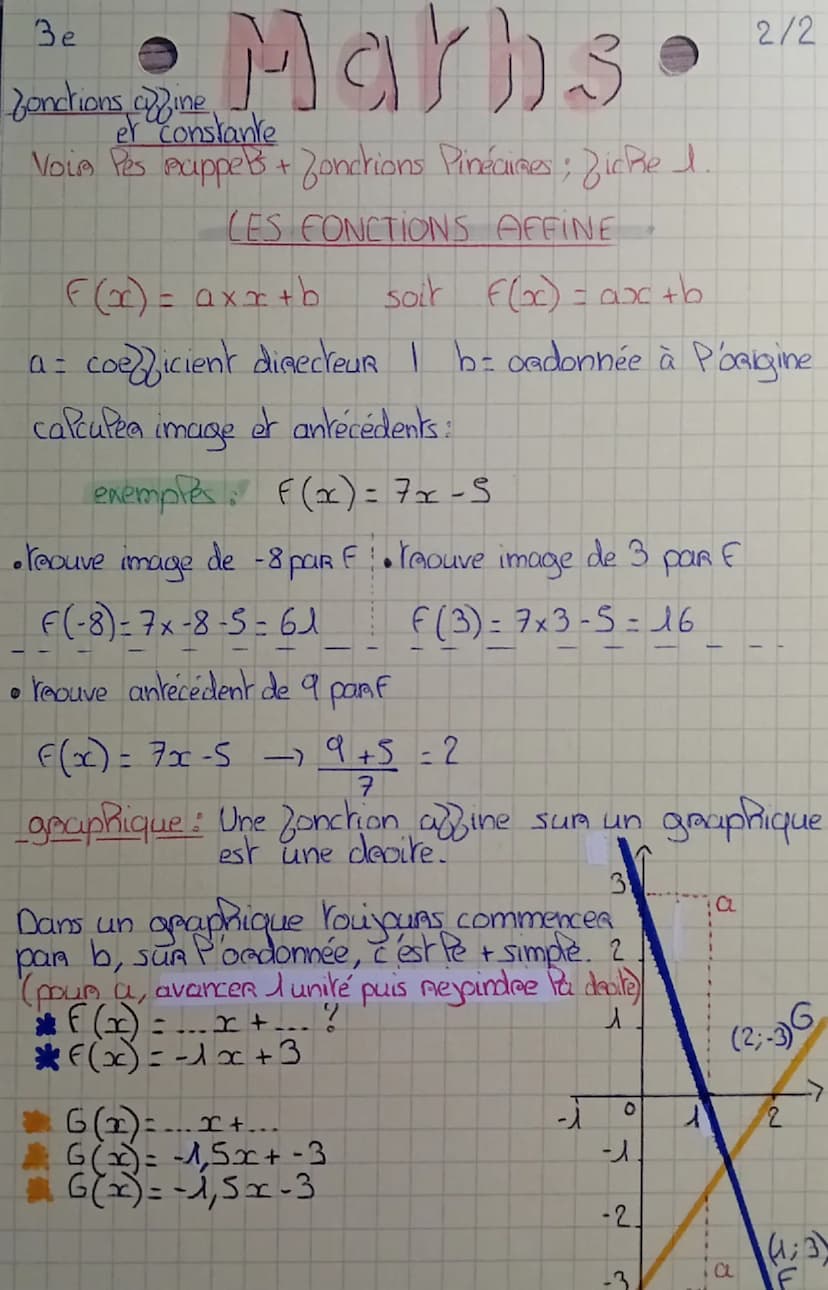 3e • Maths • 2/2
Fonctions affine
et constante
Voir les rappels + fonctions linéaires ; fiche 1.
LES FONCTIONS AFFINE
F(x) = a×x+b soit F(x) = ax+b
a = coefficient directeur | b = ordonnée à l'origine
calculer image et antécédents :
exemples : F(x) = 7x - 5
• trouve image de -8 par F • trouve image de 3 par F
F(-8) = 7×-8-5 = 61 F(3) = 7×3-5 = 16
• trouve antécédent de 9 par F
F(x) = 7x-5 → 9+5/7 = 2
graphique : Une fonction affine sur un graphique
est une droite.
Dans un graphique toujours commencer
par b, sur l'ordonnée, c'est le + simple.
(pour a, avancer 1 unité puis rejoindre la droite)
* F(x) = ...x + ... ?
* F(x) = -1x + 3
G(x) = ...x + ...
G(x) = -1,5x + -3
G(x) = -1,5x - 3
3 a
2
1
(2;-3) G
-1 0 1 2
-1
-2
(1;3)
-3 a F